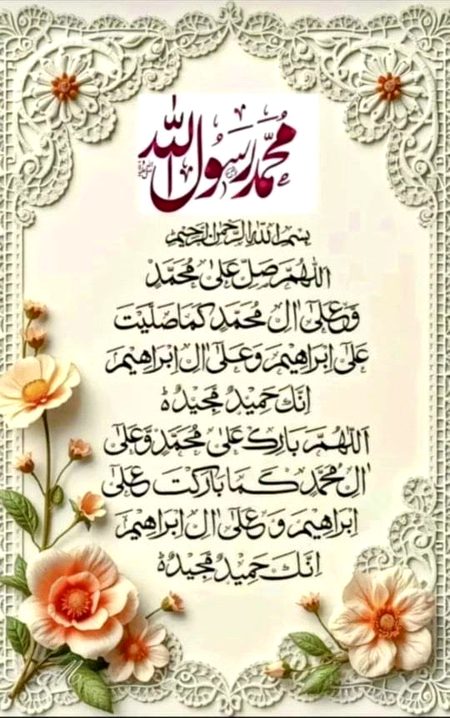 محمد رسول الله ﷺ
بسم الله الرحمن الرحيم
اَللّٰهُمَّ صَلِّ عَلٰى مُحَمَّدٍ
وَّعَلٰٓى اٰلِ مُحَمَّدٍ كَمَا صَلَّيْتَ
عَلٰٓى اِبْرَاهِيْمَ وَعَلٰٓى اٰلِ اِبْرَاهِيْمَ
اِنَّكَ حَمِيْدٌ مَّجِيْدٌ ه
اَللّٰهُمَّ بَارِكْ عَلٰى مُحَمَّدٍ وَّعَلٰٓى
اٰلِ مُحَمَّدٍ كَمَا بَارَكْتَ عَلٰٓى
اِبْرَاهِيْمَ وَعَلٰٓى اٰلِ اِبْرَاهِيْمَ
اِنَّكَ حَمِيْدٌ مَّجِيْدٌ ه